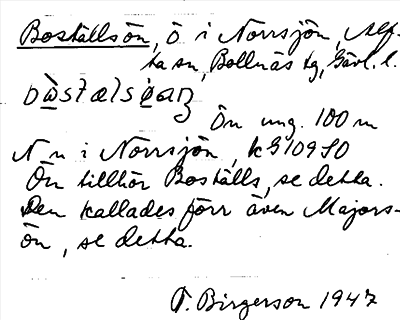 Boställsön, ö i Norrsjön, Alf-
ta sn, Bollnäs tg, Gävl. l.
Ön ung. 100 m
N n i Norrsjön, k G 109 SO
Ön tillhör Boställs, se detta.
Den kallades förr även Majors-
ön, se detta.
T. Birgerson 1947